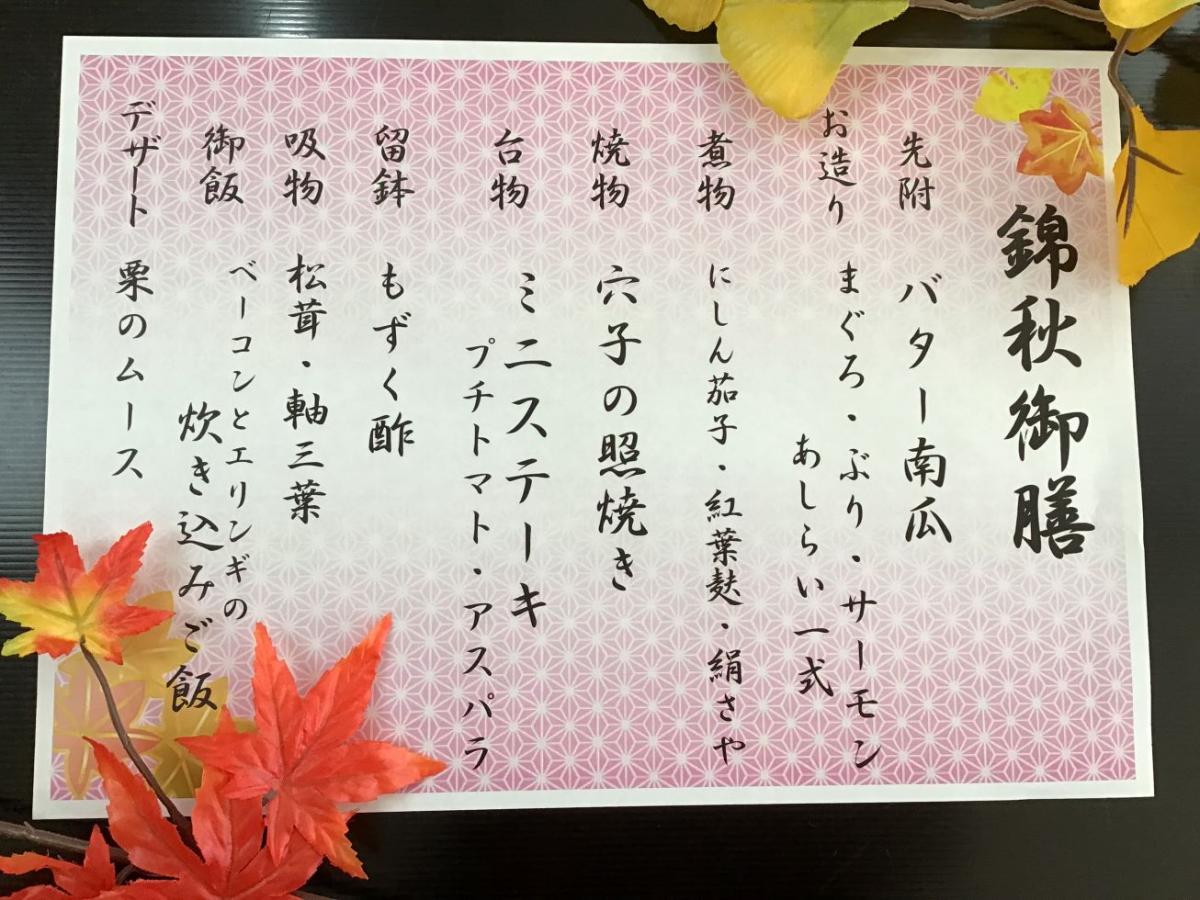 錦秋御膳
先附 バター南瓜
お造り まぐろ・ぶり・サーモン
あしらい一式
煮物 にしん茄子・紅葉麩・絹さや
焼物 穴子の照焼き
台物 ミニステーキ
プチトマト・アスパラ
留鉢 もずく酢
吸物 松茸・軸三葉
御飯 ベーコンとエリンギの
炊き込みご飯
デザート 栗のムース